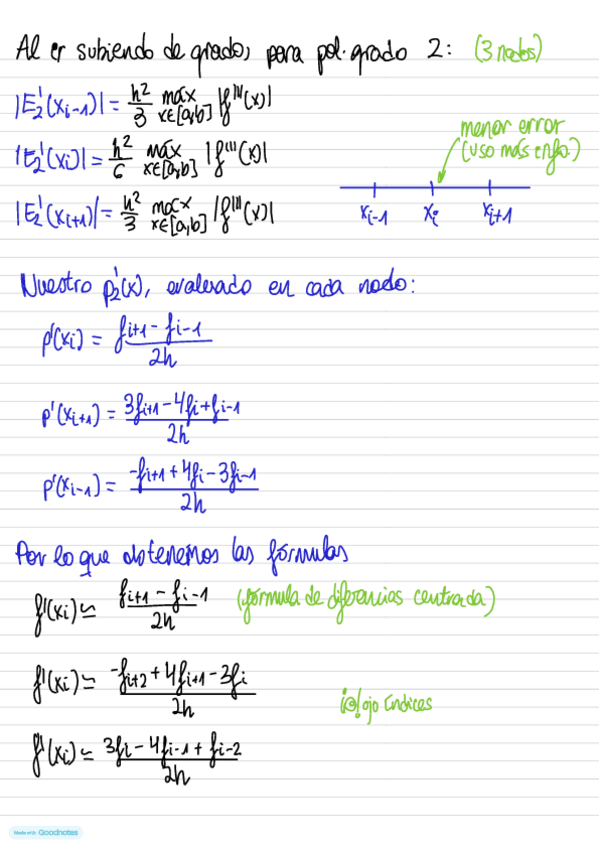 Al er subiendo de grado, para pol. grado 2: (3 nodos)
|E₂'(xᵢ₋₁)| = h²/3 máx x∈[a,b] |f'''(x)|
menor error
|E₂'(xᵢ)| = h²/6 máx x∈[a,b] |f'''(x)|
(uso más enfo)
|E₂'(xᵢ₊₁)| = h²/3 máx x∈[a,b] |f'''(x)|
xᵢ₋₁ xᵢ xᵢ₊₁
Nuestro p₂'(x), evaluado en cada nodo:
p'(xᵢ) = (fᵢ₊₁ - fᵢ₋₁)/2h
p'(xᵢ₊₁) = (3fᵢ₊₁ - 4fᵢ + fᵢ₋₁)/2h
p'(xᵢ₋₁) = (-fᵢ₊₁ + 4fᵢ - 3fᵢ₋₁)/2h
Por lo que obtenemos las fórmulas
f'(xᵢ) ≃ (fᵢ₊₁ - fᵢ₋₁)/2h (fórmula de diferencias centrada)
f'(xᵢ) ≃ (-fᵢ₊₂ + 4fᵢ₊₁ - 3fᵢ)/2h
ojo índices
f'(xᵢ) ≃ (3fᵢ - 4fᵢ₋₁ + fᵢ₋₂)/2h
Made with Goodnotes